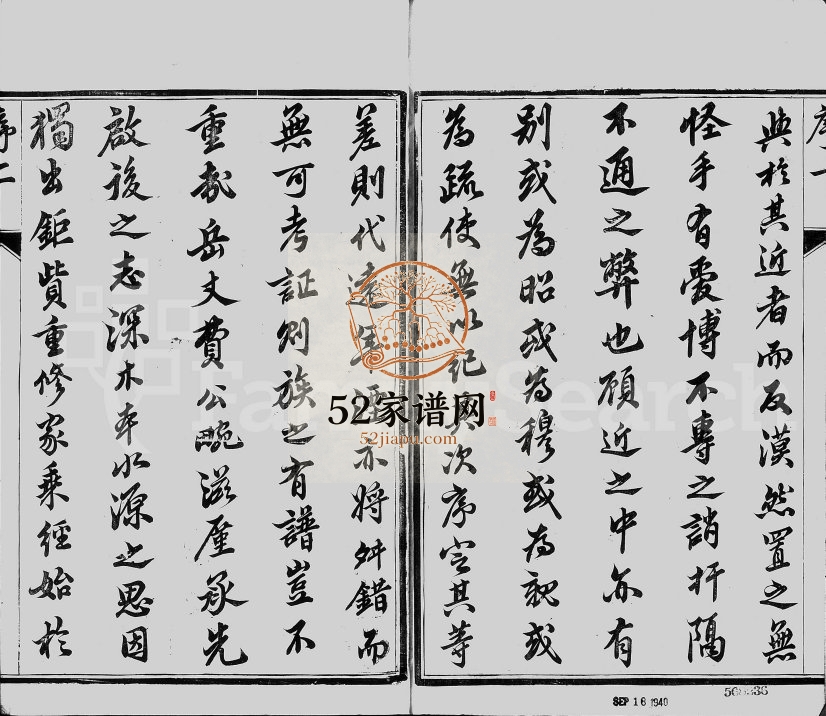 序一
典於其近者而反漠然置之無
怪乎有愛博不專之誚扞隔
不通之弊也顧近之中亦有
別或為昭或為穆或為親或
為疏使無以紀其次序定其等
差則代遠年湮亦將舛錯而
無可考証則族之有譜豈不
重哉岳丈費公畹滋屋承先
啟後之志深木本水源之思因
獨出鉅貲重修家乘經始於
序二
52家谱网
52jiapu.com
FamilySearch
SEP 16 1940